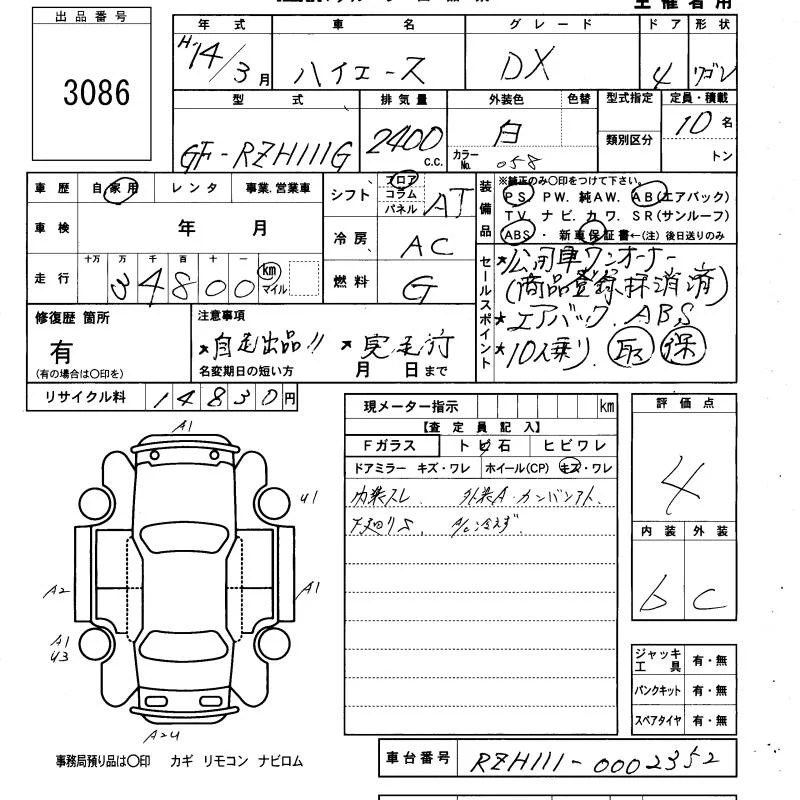 主催者用
出品番号
3086
年式 車名 グレード ドア 形状
H14/3月 ハイエース DX 4 ワゴン
型式 排気量 外装色 色替 型式指定 定員・積載
GF-RZH111G 2400 C.C. 白 類別区分 10名
カラーNo. 058 トン
車歴 自家用 レンタ 事業.営業車
車検 年 月
走行 十万 万 千 百 十 一
34800 km マイル
シフト フロア コラム パネル AT
冷房 AC
燃料 G
装備品
※純正のみ〇印をつけて下さい。
PS PW. 純AW. AB(エアバック)
TV. ナビ. カワ. SR(サンルーフ)
ABS・ 新車保証書←(注) 後日送りのみ
セールスポイント
★公用車ワンオーナー
(商品登録抹消済)
★エアバック. ABS
★10人乗り. 取 保
修復歴 箇所
有
(有の場合は〇印を)
注意事項
★自走出品!! ★実走行
名変期日の短い方 月 日まで
リサイクル料 14830円
現メーター指示 km
【査定員記入】
Fガラス トビ石 ヒビワレ
ドアミラー キズ・ワレ ホイール(CP) キズ・ワレ
内装スレ. 外装A・カンバンアト.
下廻りS. A/C冷えず.
評価点
4
内装 外装
b C
ジャッキ工具 有・無
パンクキット 有・無
スペアタイヤ 有・無
A1
U1
A2
A1
A1
U3
A2U
事務局預り品は〇印 カギ リモコン ナビロム
車台番号 RZH111-0002352